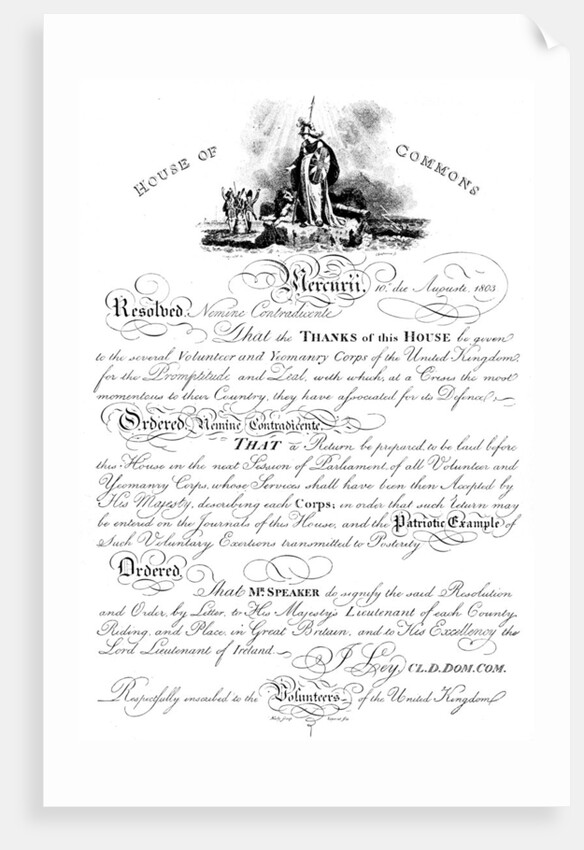 HOUSE OF COMMONS
Mercurii, 10º. die Augusti, 1803
Resolved, Nemine Contradicente
That the THANKS of this HOUSE be given
to the several Volunteer and Yeomanry Corps of the United Kingdom,
for the Promptitude and Zeal, with which, at a Crisis the most
momentous to their Country, they have associated for its Defence,
Ordered, Nemine Contradicente.
THAT a Return be prepared, to be laid before
this House in the next Session of Parliament, of all Volunteer and
Yeomanry Corps, whose Services shall have been then Accepted by
His Majesty, describing each Corps; in order that such return may
be entered on the Journals of this House, and the Patriotic Example of
Such Voluntary Exertions transmitted to Posterity
Ordered,
That MR. SPEAKER do signify the said Resolution
and Order, by Letter, to His Majesty's Lieutenant of each County,
Riding, and Place, in Great Britain, and to His Excellency the
Lord Lieutenant of Ireland.
J. Ley, CL. D. DOM. COM.
Respectfully inscribed to the Volunteers of the United Kingdom